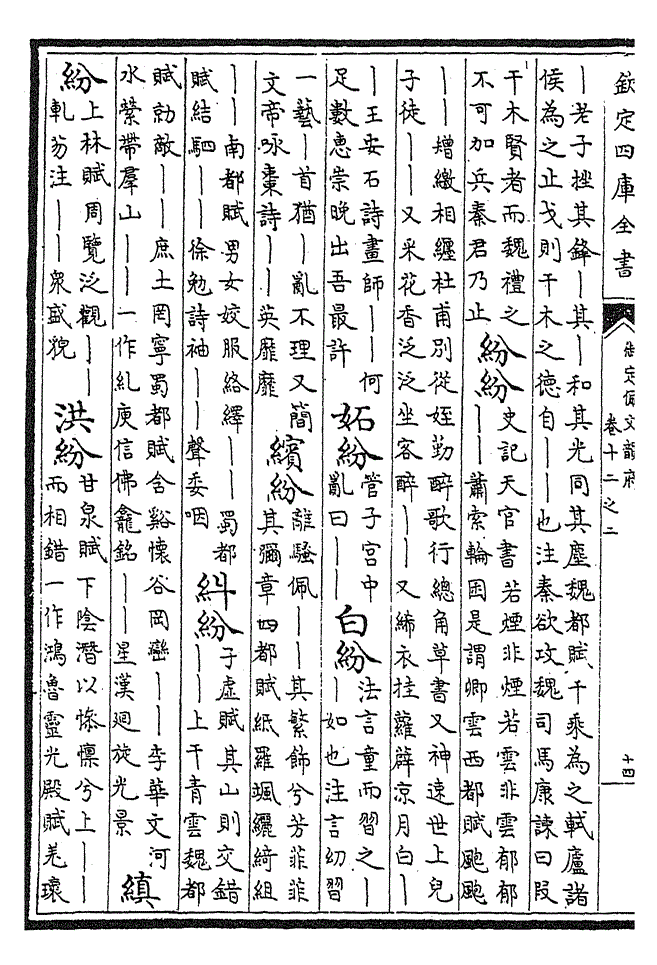 欽定四庫全書
御定佩文韻府
卷十二之二
十四
丨老子挫其鋒丨其丨和其光同其塵魏都賦干乘為之軾廬諸
侯為之止戈則干木之德自丨丨也注秦欲攻魏司馬康諫曰段
干木賢者而魏禮之
不可加兵秦君乃止
紛紛
史記天官書若煙非煙若雲非雲郁郁
丨丨蕭索輪囷是謂卿雲西都賦颫颫
丨丨矰繳相纏杜甫別從姪勤醉歌行總角草書又神遠世上兒
子徒丨丨又采花香泛泛坐客醉丨丨又絺衣挂蘿薜凉月白丨
丨王安石詩畫師丨丨何
足數惠崇晚出吾最許
妬紛
管子宫中
亂曰丨丨
白紛
法言童而習之丨
丨如也注言幼習
一藝丨首猶丨亂不理又簡
文帝咏棗詩丨丨英靡靡
繽紛
離騷佩丨丨其繁飾兮芳菲菲
其彌章四都賦紙羅颯纚綺組
丨丨南都賦男女姣服絡繹丨丨蜀都
賦結駟丨丨徐勉詩袖丨丨聲委咽
糾紛
子虚賦其山則交錯
丨丨上干青雲魏都
賦勍敵丨丨庶土罔寧蜀都賦含谿懷谷岡巒丨丨李華文河
水縈帶羣山丨丨一作糺庾信佛龕銘丨丨星漢廻旋光景
縝
紛
上林賦周覽泛觀丨丨
軋芴注丨丨衆盛貌
洪紛
甘泉賦下陰潛以慘懍兮上丨丨
而相錯一作鴻魯靈光殿賦羌瓌